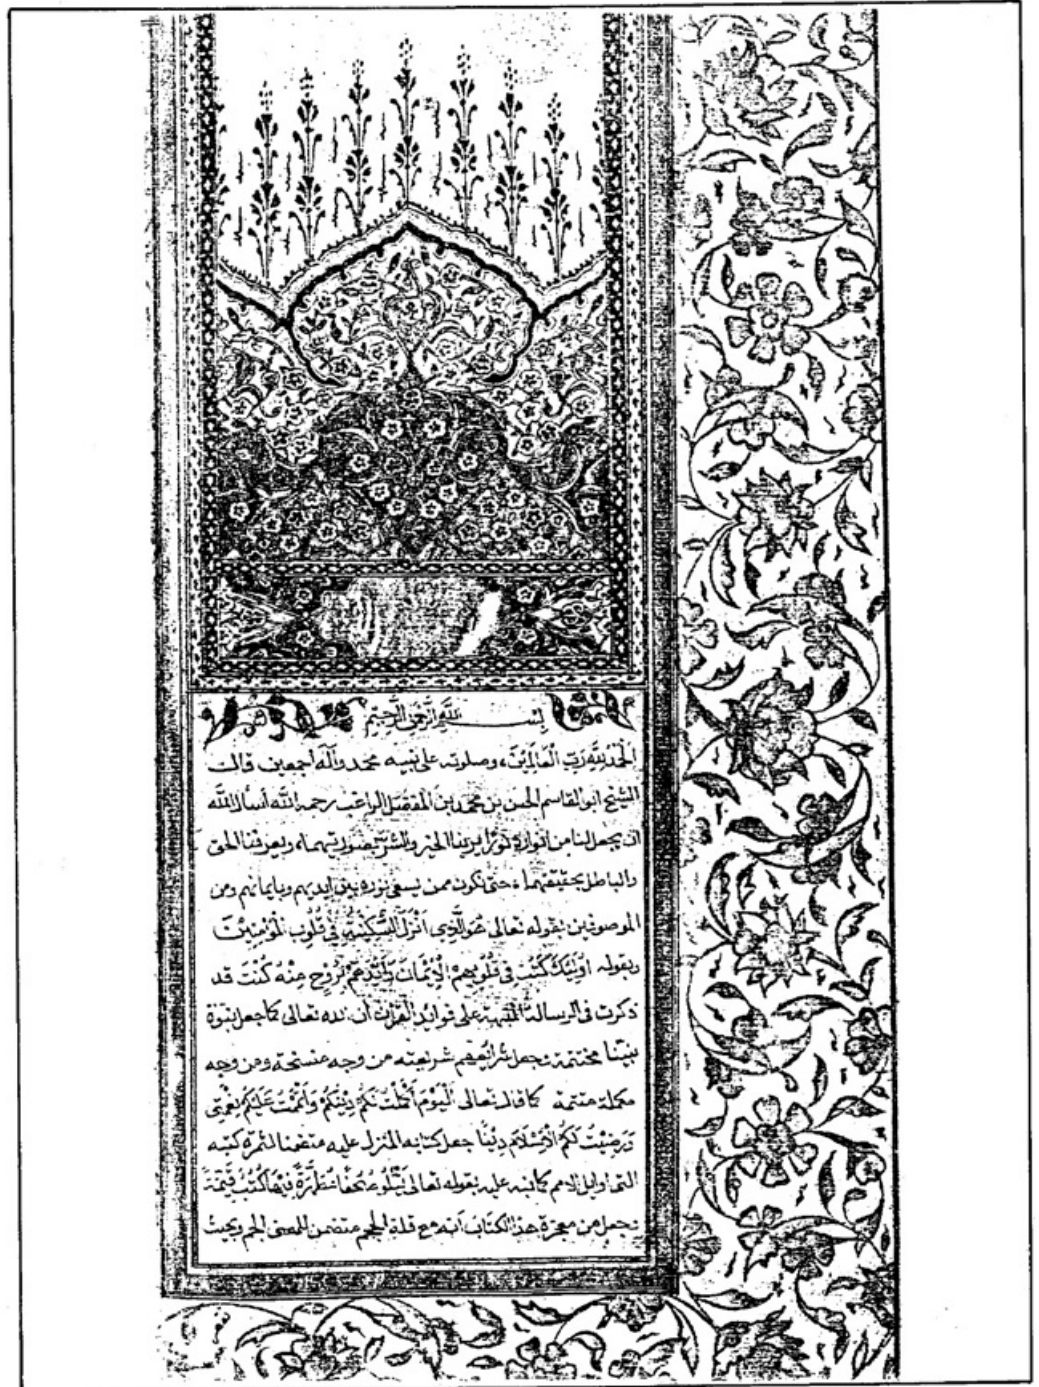 بسم الله الرحمن الرحيم
الحمد لله رب العالمين، وصلوته على نبيه محمد وآله أجمعين قالت
الشيخ ابو القاسم الحسن بن محمد بن المفضل الراغب رحمه الله أسأل الله
ان يجعل لنا من انواره نورا يرينا الخير والشر بصورتيهما، ويعرفنا الحق
والباطل بحقيقتهما، حتى نكون ممن يسعى نوره بين ايديهم وبايمانهم ومن
الموصوفين بقوله تعالى هو الذي انزل السكينة في قلوب المؤمنين
وبقوله اولئك كتب في قلوبهم الايمان وأيدهم بروح منه كنت قد
ذكرت في الرسالة المنبهة على فوائد القرآن أن الله تعالى كما جعل بنبوة
نبينا مختتمة وجعل شرائعهم شريعته من وجه منسخة ومن وجه
مكملة متممة كما قال تعالى اليوم أكملت لكم دينكم وأتممت عليكم نعمتي
ورضيت لكم الاسلام دينا جعل كتابه المنزل عليه متضمنا لثمرة كتبه
التي اوايل الامم كما نبه عليه بقوله تعالى يتلو صحفا مطهرة فيها كتب قيمة
وجعل من معجزة هذا الكتاب أنه مع قلة الحجم متضمن للمعنى الجم وبحيث